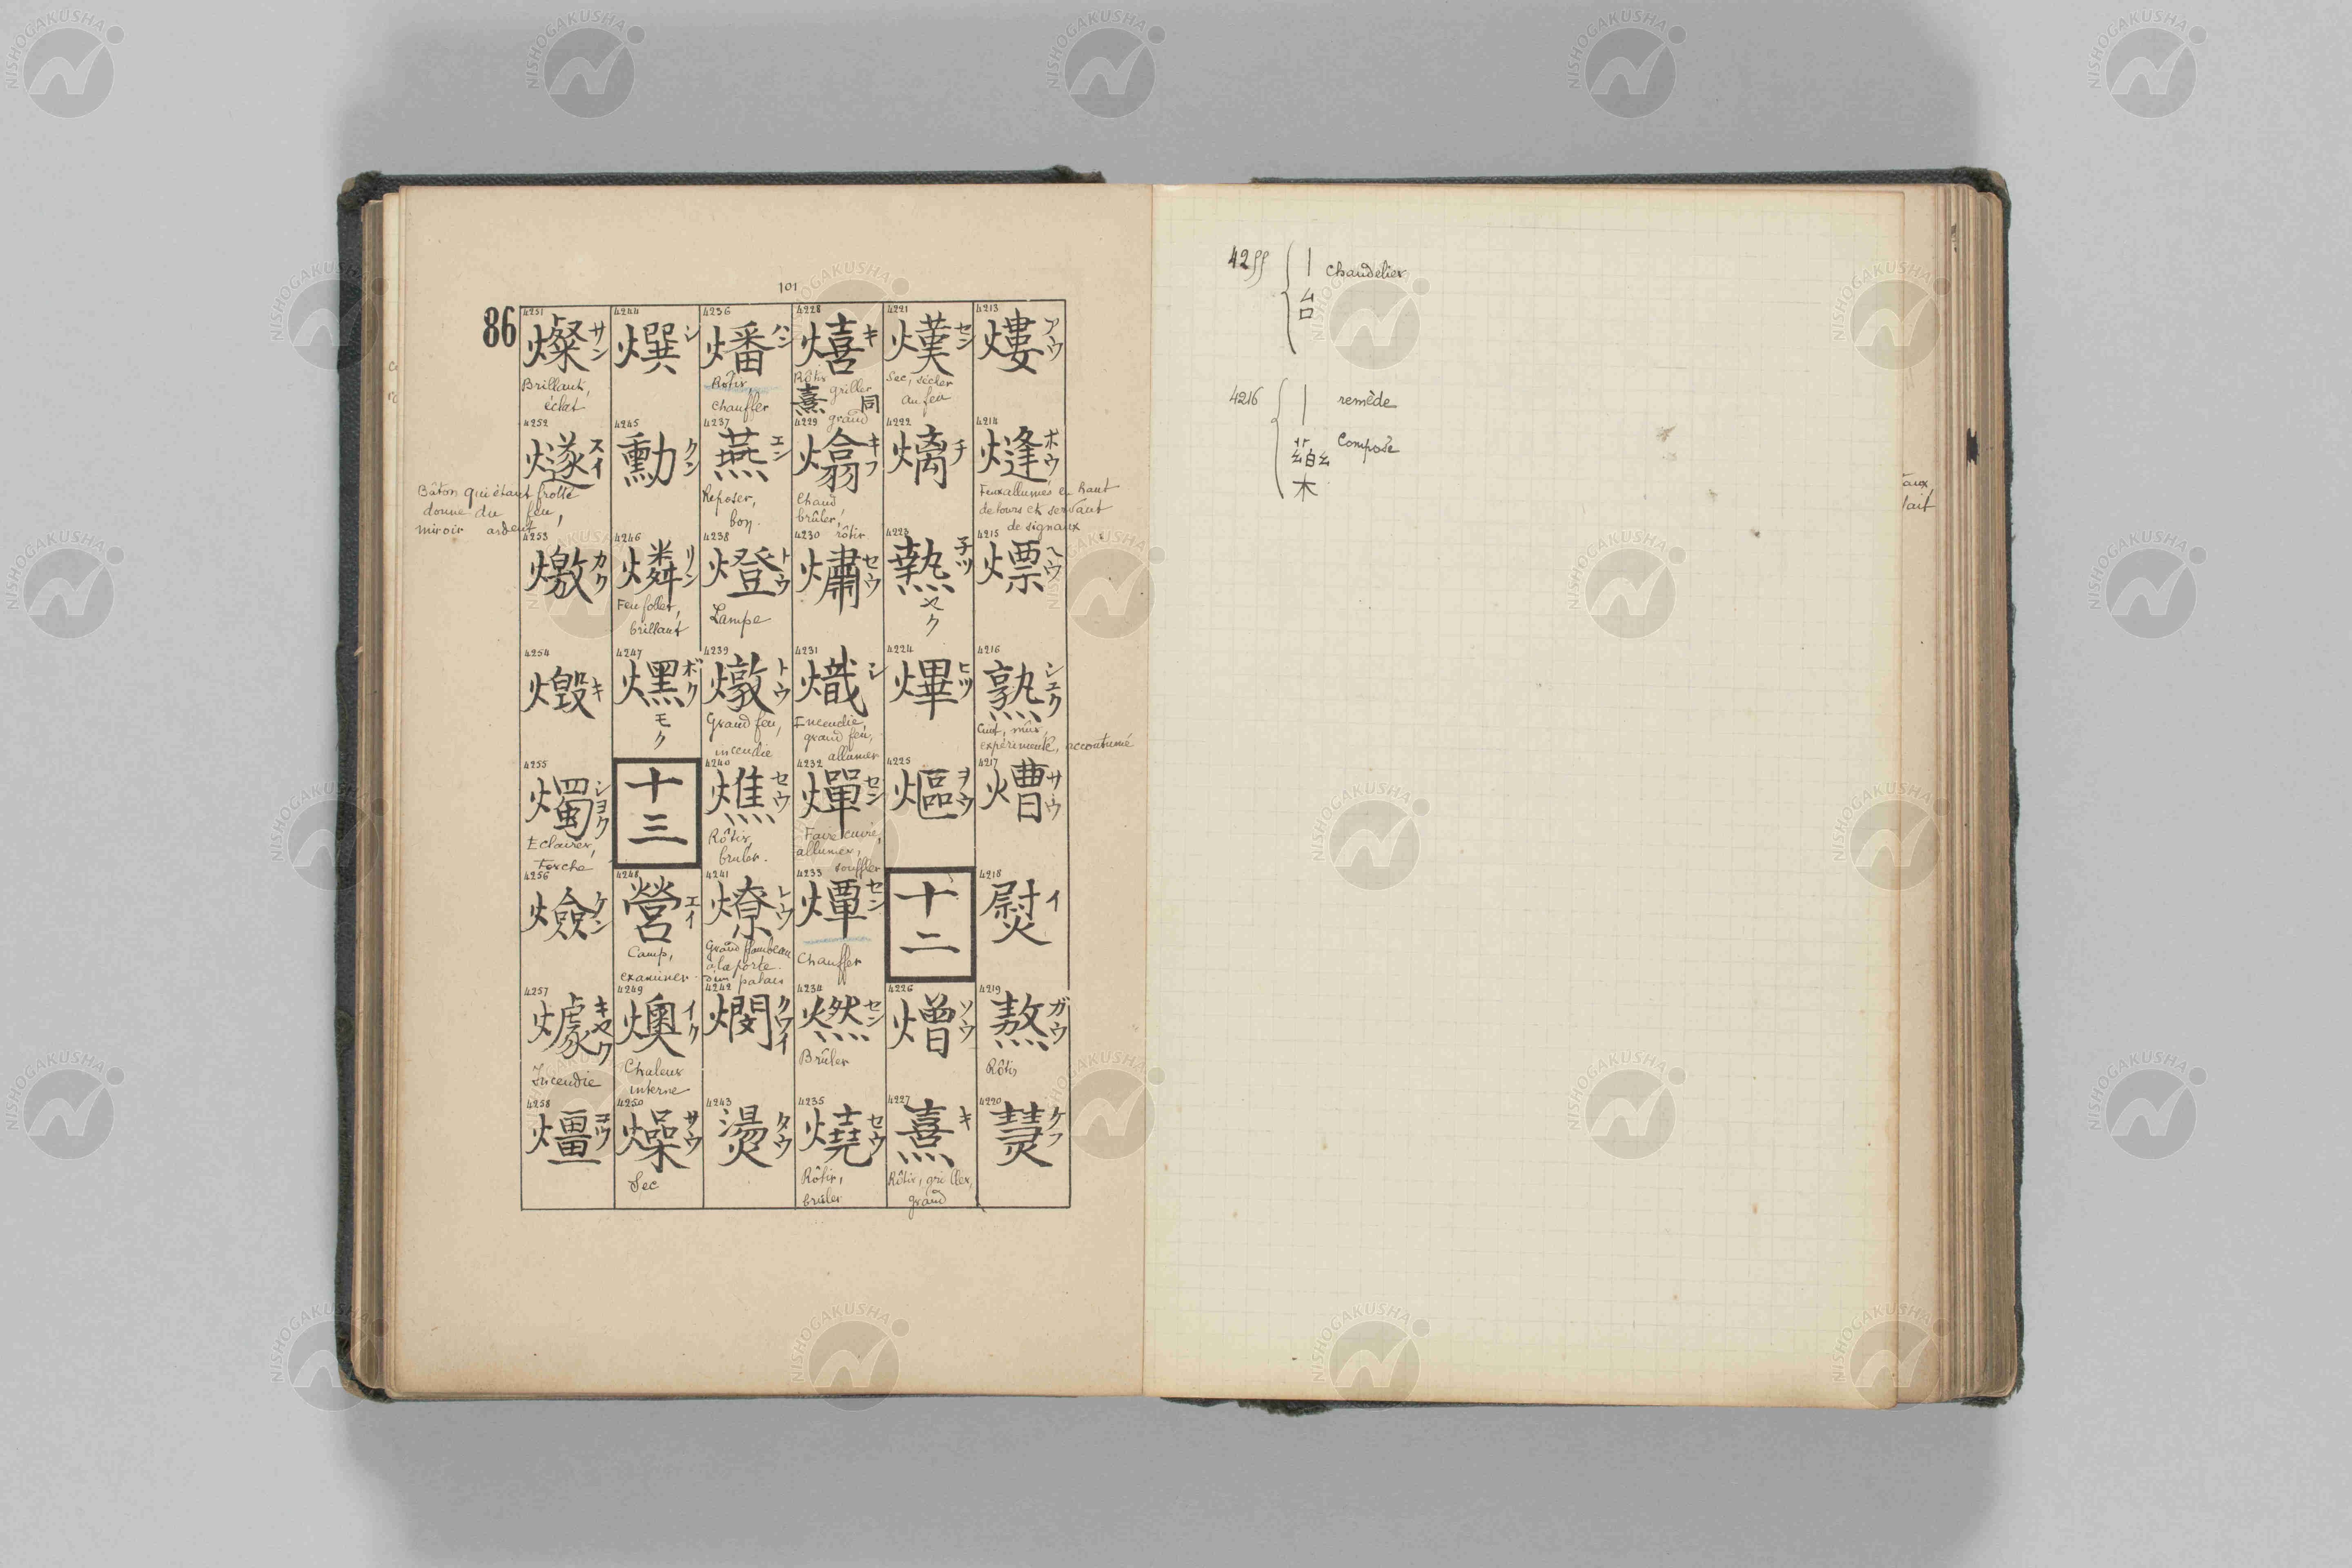 101
86
4213
熡 アウ
4214
熢 ホウ
Feux allumés en haut
de tours et servant
de signaux
4215
熛 ヘウ
4216
熟 シユク
Cuit, mûr,
expérimenté, accoutumé
4217
熸 サウ
4218
熨 イ
4219
熬 ガウ
Rôtir
4220
熭 ケフ
4221
熯 セン
Sec, sécher
au feu
4222
㷰 チ
4223
熱 子ツ
セク
4224
熚 ヒツ
4225
熰 ヲウ
十二
4226
熷 ソウ
4227
熹 キ
Rôtir, griller,
grand
4228
熺 キ
Rôtir
griller
熹 同
grand
4229
熻 キフ
Chaud
brûler,
rôtir
4230
熽 セウ
4231
熾 シ
Incendie,
grand feu,
allumer
4232
燀 セン
Faire cuire,
allumer,
souffler
4233
燂 セン
Chauffer
4234
燃 セン
Brûler
4235
燒 セウ
Rôtir,
brûler
4236
燔 ハン
Rôtir,
chauffer
4237
燕 エン
Reposer,
bon.
4238
燈 トウ
Lampe
4239
燉 トウ
Grand feu,
incendie
4240
燋 セウ
Rôtir,
bruler.
4241
燎 レウ
Grand flambeau
à la porte
d'un palais
4242
燘 クワイ
4243
燙 タウ
4244
㷷 シ
4245
勳 クン
4246
燐 リン
Feu follet,
brillant
4247
爅 ボク
モク
十三
4248
營 エイ
Camp,
examiner
4249
燠 イク
Chaleur
interne
4250
燥 サウ
Sec
4251
燦 サン
Brillant,
éclat
4252
燧 スイ
Bâton qui étant frotté
donne du feu,
miroir ardent
4253
燩 カク
4254
燬 キ
4255
燭 シヨク
Eclairer,
Torche
4256
燄 ケン
4257
㷾 キヤク
Incendie
4258
壃 コウ
4255 { | chandelier
台
4216 { | remède
composé
藥
taux,
lait
NISHOGAKUSHA